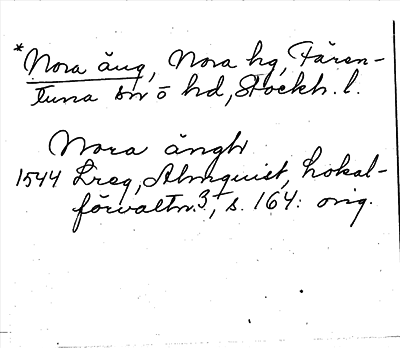 *Nora äng, Nora hg, Fären-
tuna
ö hd, Stockh. l.
Nora ängh
1544 Lreg, Almquist, Lokal-
förvaltn. 3, s. 164: orig.